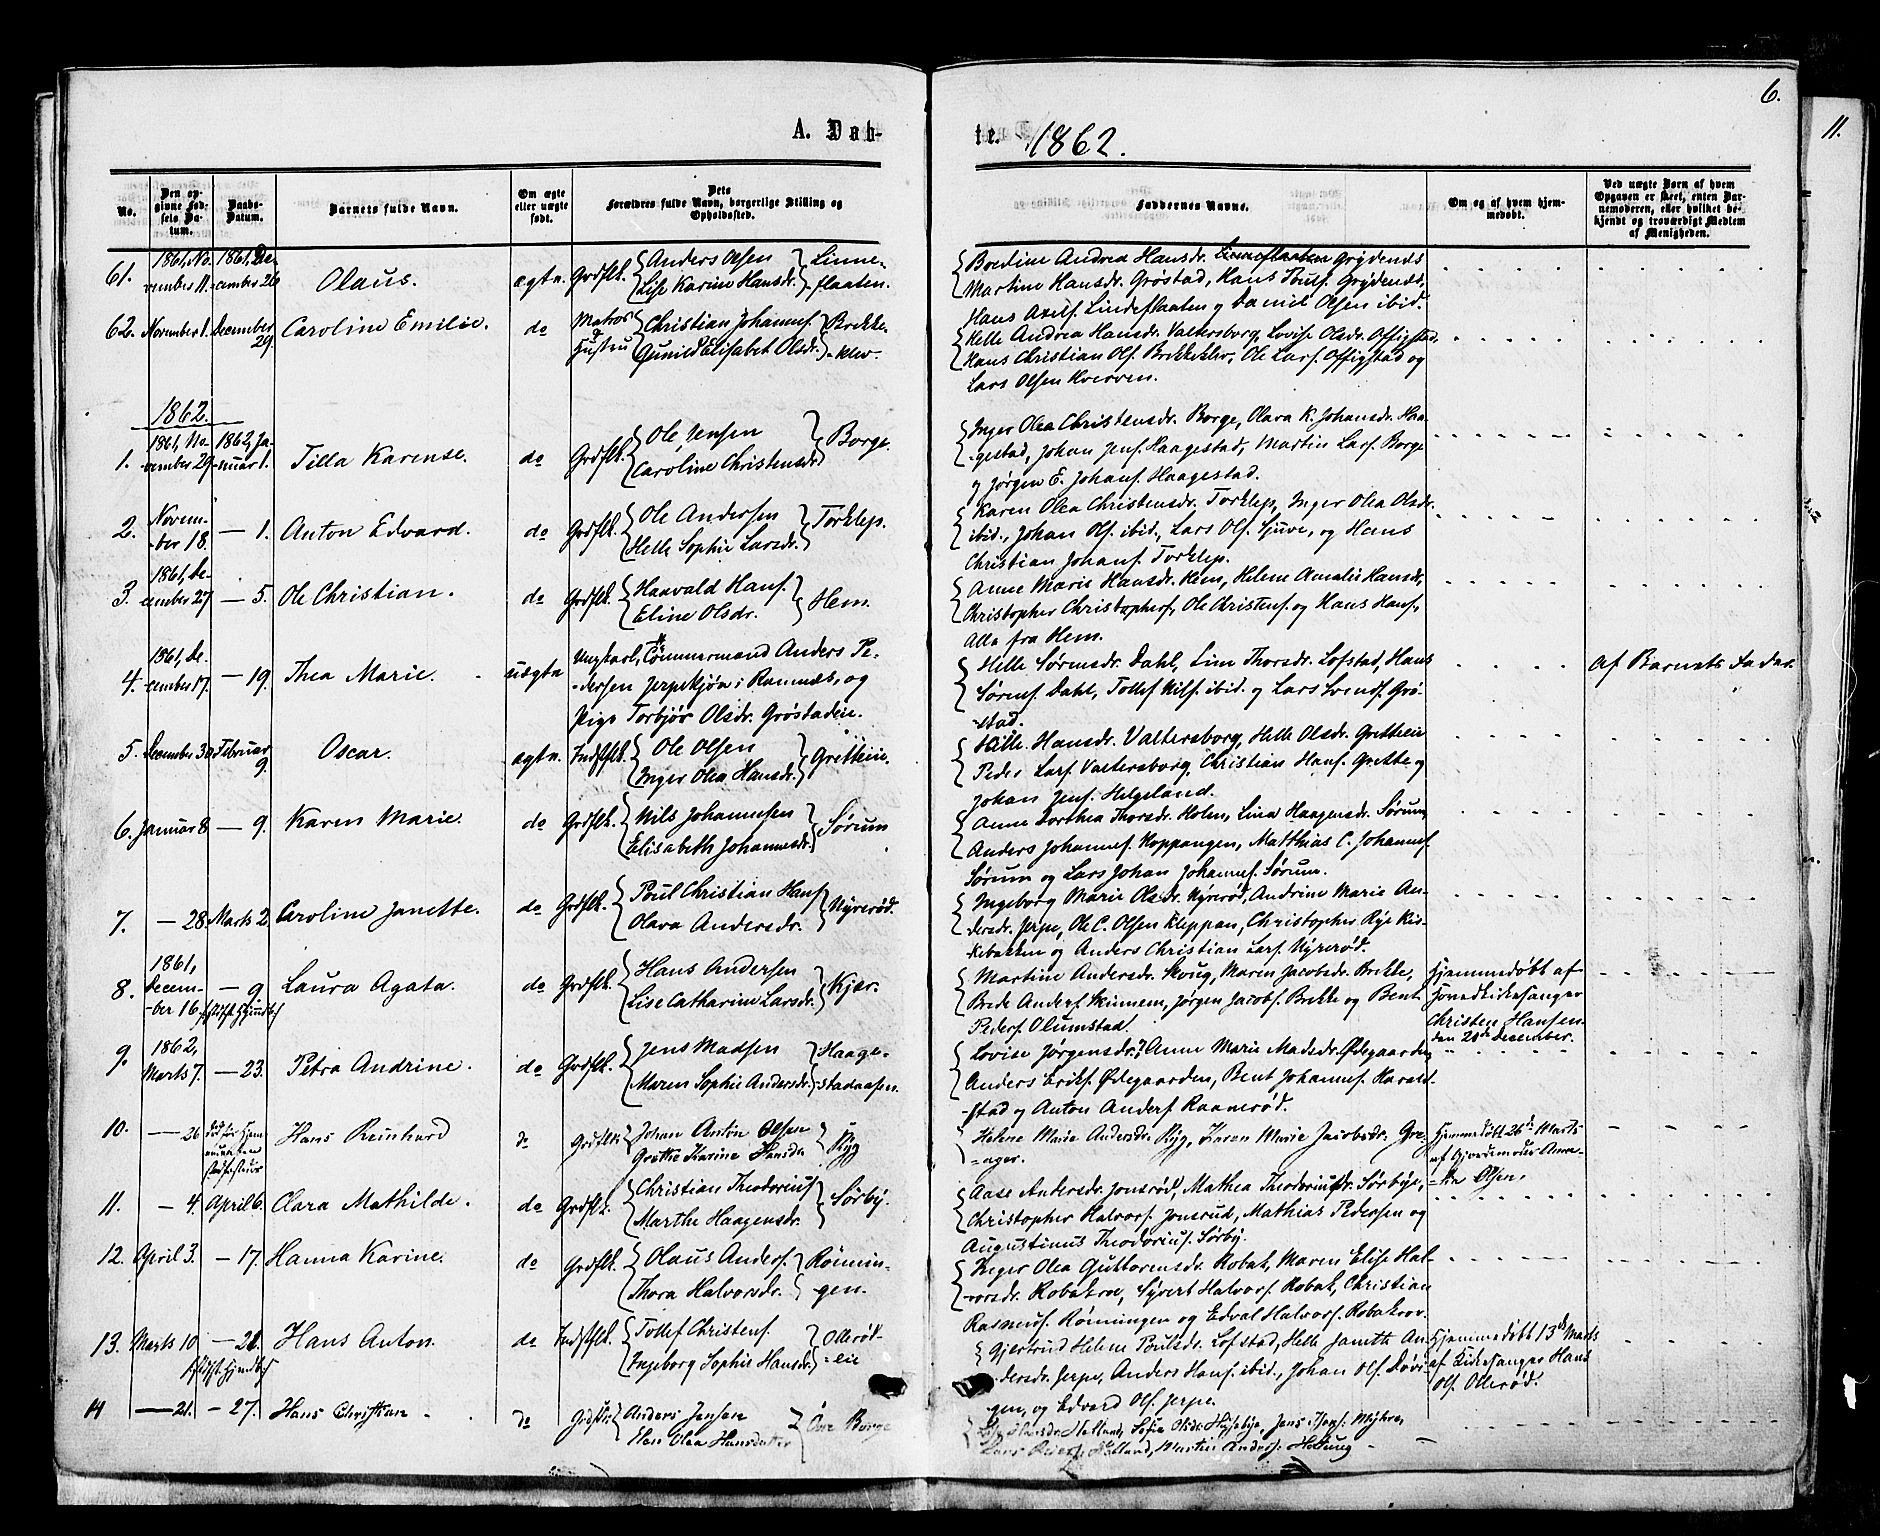 6.
11.
A. Døb-
te. 1862.
No.
Den op-
givne Fød-
sels Da-
tum.
Daabs-
Datum.
Barnets fulde Navn.
Om ægte
eller uægte
født.
Dets
Forældres fulde Navn, borgerlige Stilling og
Opholdssted.
Faddernes Navne.
Om og af hvem hjem-
medøbt.
Ved uægte Børn af hvem
Opgaven er skeet, enten Bar-
nemoderen, eller hvilket be-
kjendt og troværdigt Medlem
af Menigheden.
61. 1861, No-
vember 11. 1861, De-
cember 26 Olaus. ægte. Grdflk. Anders Olsen
Lise Karine Hansdr. Linne-
flaaten.
Bredine Andrea Hansdr. Linneflaaten Grydends
Martine Hansdr. Gröstad, Hans Grydends,
Hans Axels. Lindeflaaten og Daniel Olsen ibid.
62. November 1. December
29. Caroline Emilie. do Matros
Hustru Christian Johannes.
Gunild Elisabet Olsdr. Brekke-
-klev.
Helle Andrea Hansdr. Valtersborg, Lovise Olsdr. Offigstad,
Hans Christian Ols. Brekkeklev, Ole Lars. Offigstad og
Lars Olsen Kverven.
1862.
1. 1861, No-
vember 29 1862, Ja-
nuar 1. Tilla Karense. do Grdflk. Ole Jensen
Caroline Christensdr. Borge.
Inger Olea Christensdr. Borge, Olara K. Johansdr. Haa-
-gestad, Johan Jens. Haagestad, Martin Lars. Borge
og Jørgen E. Johans. Haagestad.
2. Novem-
-ber 18. — 1. Anton Edvard. do Grdflk. Ole Andersen
Helle Sophie Larsdr. Torklep.
Karen Olea Christensdr. Torklep, Inger Olea Olsdr.
ibid., Johan Ols. ibid., Lars Ols. Sjuve, og Hans
Christian Johans. Torklep.
3. 1861, De-
cember 27 — 5. Ole Christian. do Grdflk. Haavald Hans.
Eline Olsdr. Hem.
Anne Marie Hansdr. Hem, Helene Amalie Hansdr,
Christopher Christophers, Ole Christens. og Hans Hans.,
Alle fra Hem.
4. 1861, De-
cember 17. — 19. Thea Marie. uægte Ungkarl, Tömmermand Anders Pe-
-dersen Jerpekjøn i Ramnæs, og
Pige Torbjør Olsdr. Gröstadeie.
Helle Sørensdr. Dahl, Line Thorsdr. Lofstad, Hans
Sørens. Dahl, Tollef Nils. ibid. og Lars Svends. Grö-
-stad.
af Barnets Fader.
5. December 30 Februar
9. Oscar. ægte. Indstflk. Ole Olsen
Inger Olea Hansdr. Gretteeie.
Helle Hansdr. Valtersborg, Helle Olsdr. Gretteeie
Peder Lars. Valtersborg, Christian Hans. Grette og
Johan Jens. Helgeland.
6. Januar 8 — 9. Karen Marie. do Grdflk. Nils Johannesen
Elisabeth Johannesdr. Sørum
Anne Dorthea Thorsdr. Holen, Lina Haagensdr. Sørum,
Anders Johannes. Koppangen, Matthias C. Johannes.
Sørum og Lars Johan Johannes. Sørum.
7. — 28. Marts 2. Caroline Janette. do Grdflk. Poul Christian Hans.
Olava Andersdr. Nyrerød.
Ingeborg Marie Olsdr. Nyrerød, Andrine Marie An-
dersdr. Jerpe, Ole C. Olsen Kleppan, Christopher Rye Kis-
-kebakken og Anders Christian Lars. Nyrerød.
8. 1861,
Decem-
-ber 16, — 9. Laura Agata. do Grdflk. Hans Andersen
Lise Catharine Larsdr. Kjær.
Martine Andersdr. Skoug, Maren Jacobsdr. Brekke,
Brede Anders. Skinnem, Jørgen Jacobs. Brekke og Bent
Peders. Olumstad.
Hjemmedøbt af
Hovedkirkesanger
Christen Hansen.
den 20de December.
9. 1862,
Marts 7. — 23. Petra Andrine. do Grdflk. Jens Madsen
Maren Sophie Andersdr. Haage-
stadaasen.
Lovise Jørgensdr., Anne Marie Madsdr. Ødegaarden
Anders Eriks. Ødegaarden, Bent Johannes. Harald-
-stad og Anton Anders. Raanerød.
10. — 26 Hans Reinhard do Grdflk. Johan Anton Olsen
Grethe Karine Hansdr. Ryg
Helene Marie Andersdr. Ryg, Karen Marie Jacobsdr. Gre-
-ager.
Hjemmedøbt 26de Marts
af Gjordemoder Anna-
Olsen.
11. — 4. April 6. Clara Mathilde. do Grdflk. Christian Theodorius.
Marthe Haagensdr. Sørby.
Aase Andersdr. Jonsrød, Mathea Theodoriusdr. Sørbye,
Christopher Halvors. Jonsrud, Mathias Pedersen og
Augustinus Theodorius. Sørby.
12. April 3. — 17. Hanna Karine. do Grdflk. Olaus Anders.
Thora Halvorsdr. Rönnin-
gen.
Inger Olea Guttormsdr. Robak, Maren Elise Hal-
-vorsdr. Robakroe, Syvert Halvors. Robak, Christian
Rasmus. Rönningen og Edval Halvors. Robakrov.
13. Marts 10 — 21. Hans Anton. do Indstflk. Tollef Christens.
Ingeborg Sophie Hansdr. Ollerød-
-eie
Gjertrud Helene Poulsdr. Lofstad, Helle Janette An-
dersdr. Jerpe, Anders Hans. ibid., Johan Ols. Døvi-
gen, og Edvard Ols. Jerpe.
Hjemmedøbt 13de Marts
af Kirkesanger Hans
Ols. Ollerød.
14 — 21. — 27. Hans Christian do Grdflk. Anders Jensen
Elen Olea Hansdatter Øvre Borge
Hansdr. Hotland, Sofie Olsdr. Huseby, Jens Myhre,
Lars Hotland, Martin Anders. Holtung